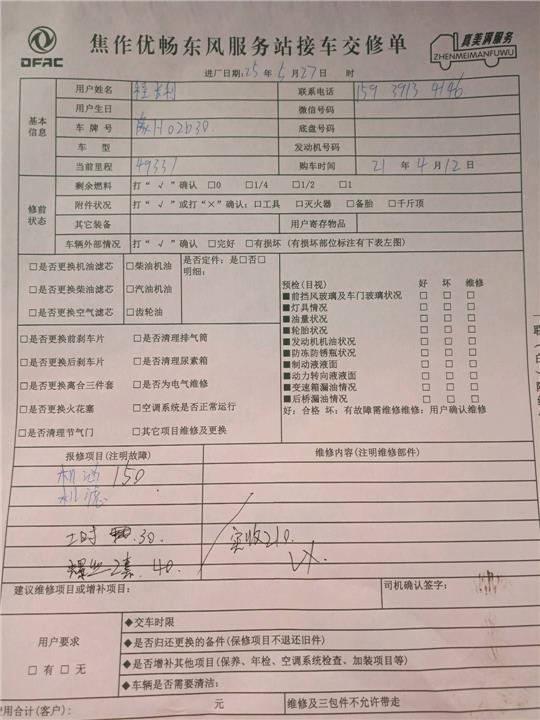 DFAC
焦作优畅东风服务站接车交修单
真美满服务
ZHENMEIMANFUWU
进厂日期:25 年 5 月 27 日 时
基本信息
用户姓名 联系电话 159 3913 4146
用户生日 微信号码
车 牌 号 豫H02b30 底盘号码
车 型 发动机号码
当前里程 49331 购车时间 21 年 4 月 12 日
修前状态
剩余燃料 打“ √ ”确认 □0 □1/4 □1/2 □1
附件状况 打“ √ ”或打“×”确认:□工具 □灭火器 □备胎 □千斤顶
其它装备 用户寄存物品
车辆外部情况 打“ √ ”确认 □完好 □有损坏 (有损坏部位标注有下表左图)
□是否更换机油滤芯 □柴油机油 是否定件: 是□否□
明细:
□是否更换柴油滤芯 □汽油机油
□是否更换空气滤芯 □齿轮油
预检(目视) 好 坏 维修
■前挡风玻璃及车门玻璃状况 □ □ □
■灯具情况 □ □ □
■油量状况 □ □ □
■轮胎状况 □ □ □
■发动机机油状况 □ □ □
■防冻防锈瓶状况 □ □ □
■制动液液面 □ □ □
■动力转向液液面 □ □ □
■变速箱漏油情况 □ □ □
■后桥漏油情况 □ □ □
好: 合格 坏: 有故障需维修维修: 用户确认维修
□是否更换前刹车片 □是否清理排气筒
□是否更换后刹车片 □是否清理尿素箱
□是否更换离合三件套 □是否为电气维修
□是否更换火花塞 □空调系统是否正常运行
□是否清理节气门 □其它项目维修及更换
报修项目(注明故障) 维修内容(注明维修部件)
机油 150
机滤
工时 30.
实收210.
螺丝2素 40.
VX.
建议维修项目或增补项目: 司机确认签字:
用户要求
□ 有 □ 无
◆交车时限
◆是否归还更换的备件(保修项目不退还旧件)
◆是否增补其他项目(保养、年检、空调系统检查、加装项目等)
◆车辆是否需要清洁:
费用合计(客户): 元 维修及三包件不允许带走
联
(
白
)